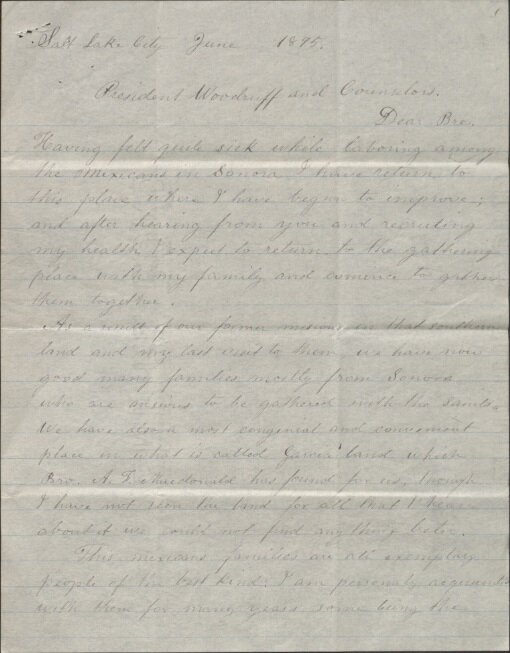 Salt Lake City June 1895.
President Woodruff and Counselors.
Dear Bre.
Having felt quite sick while laboring among
the Mexicans in Sonora I have return to
this place where I have begun to improve;
and after hearing from you and recruiting
my health I expect to return to the gathering
place with my family and comence to gather
them together.
As a result of our former missions in that southern
land and my last visit to them, we have now
good many families mostly from Sonora
who are anxious to be gathered with the saints.
We have also a most congenial and convenient
place in what is called Garcia land which
Bro. A. F. Macdonald has found for us, though
I have not seen the land for all that I hear
about it we could not find any thing better.
This mexicans families are all exemplary
people of the best kind; I am personaly acquainted
with them for many years some being the